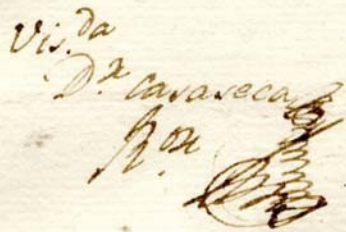 Vis.da
D.r Casaseca
R.on